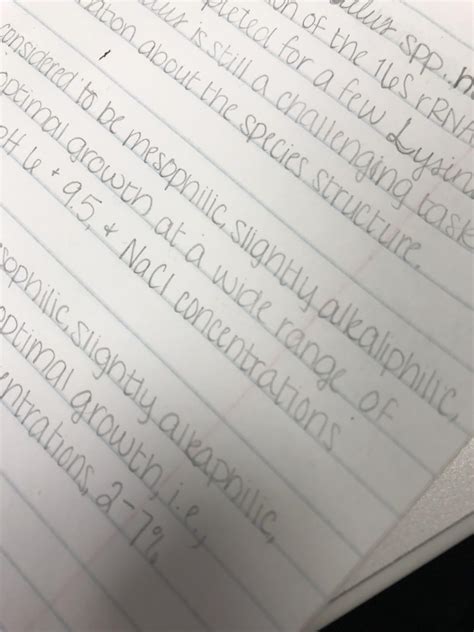 llus spp.
on of the 16S rRNA
llus is still a challenging task
pleted for a few Lysin
ation about the species structure.
considered to be mesophilic, slightly alkaliphilic,
optimal growth at a wide range of
pH 6 + 9.5, & NaCl concentrations
sophilic, slightly alkaphilic,
optimal growth, i.e.,
entrations, 2-7%